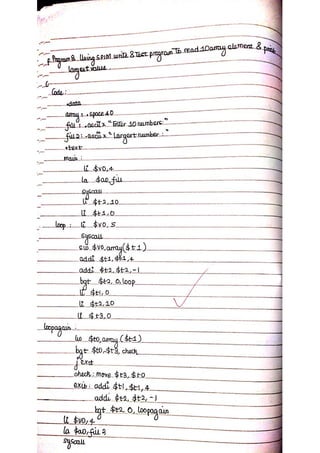 Program 8 Using SPIM write & Test program To read 10 array element & print
largest value.
Code :
.data
array : .space 40
fill : .asciiz "Enter 10 numbers:"
fill2 : .asciiz "Largest number :"
.text
main :
li $v0, 4
la $a0, fill
syscall
li $t2, 10
li $t1, 0
loop : li $v0, 5
syscall
sw $v0, array($t1)
addi $t1, $t1, 4
addi $t2, $t2, -1
bgt $t2, 0, loop
li $t1, 0
li $t2, 10
li $t3, 0
loopagain :
lw $t0, array ($t1)
bgt $t0, $t3, check
j exit
check : move $t3, $t0
exit : addi $t1, $t1, 4
addi $t2, $t2, -1
bgt $t2, 0, loopagain
li $v0, 4
la $a0, fill 2
syscall